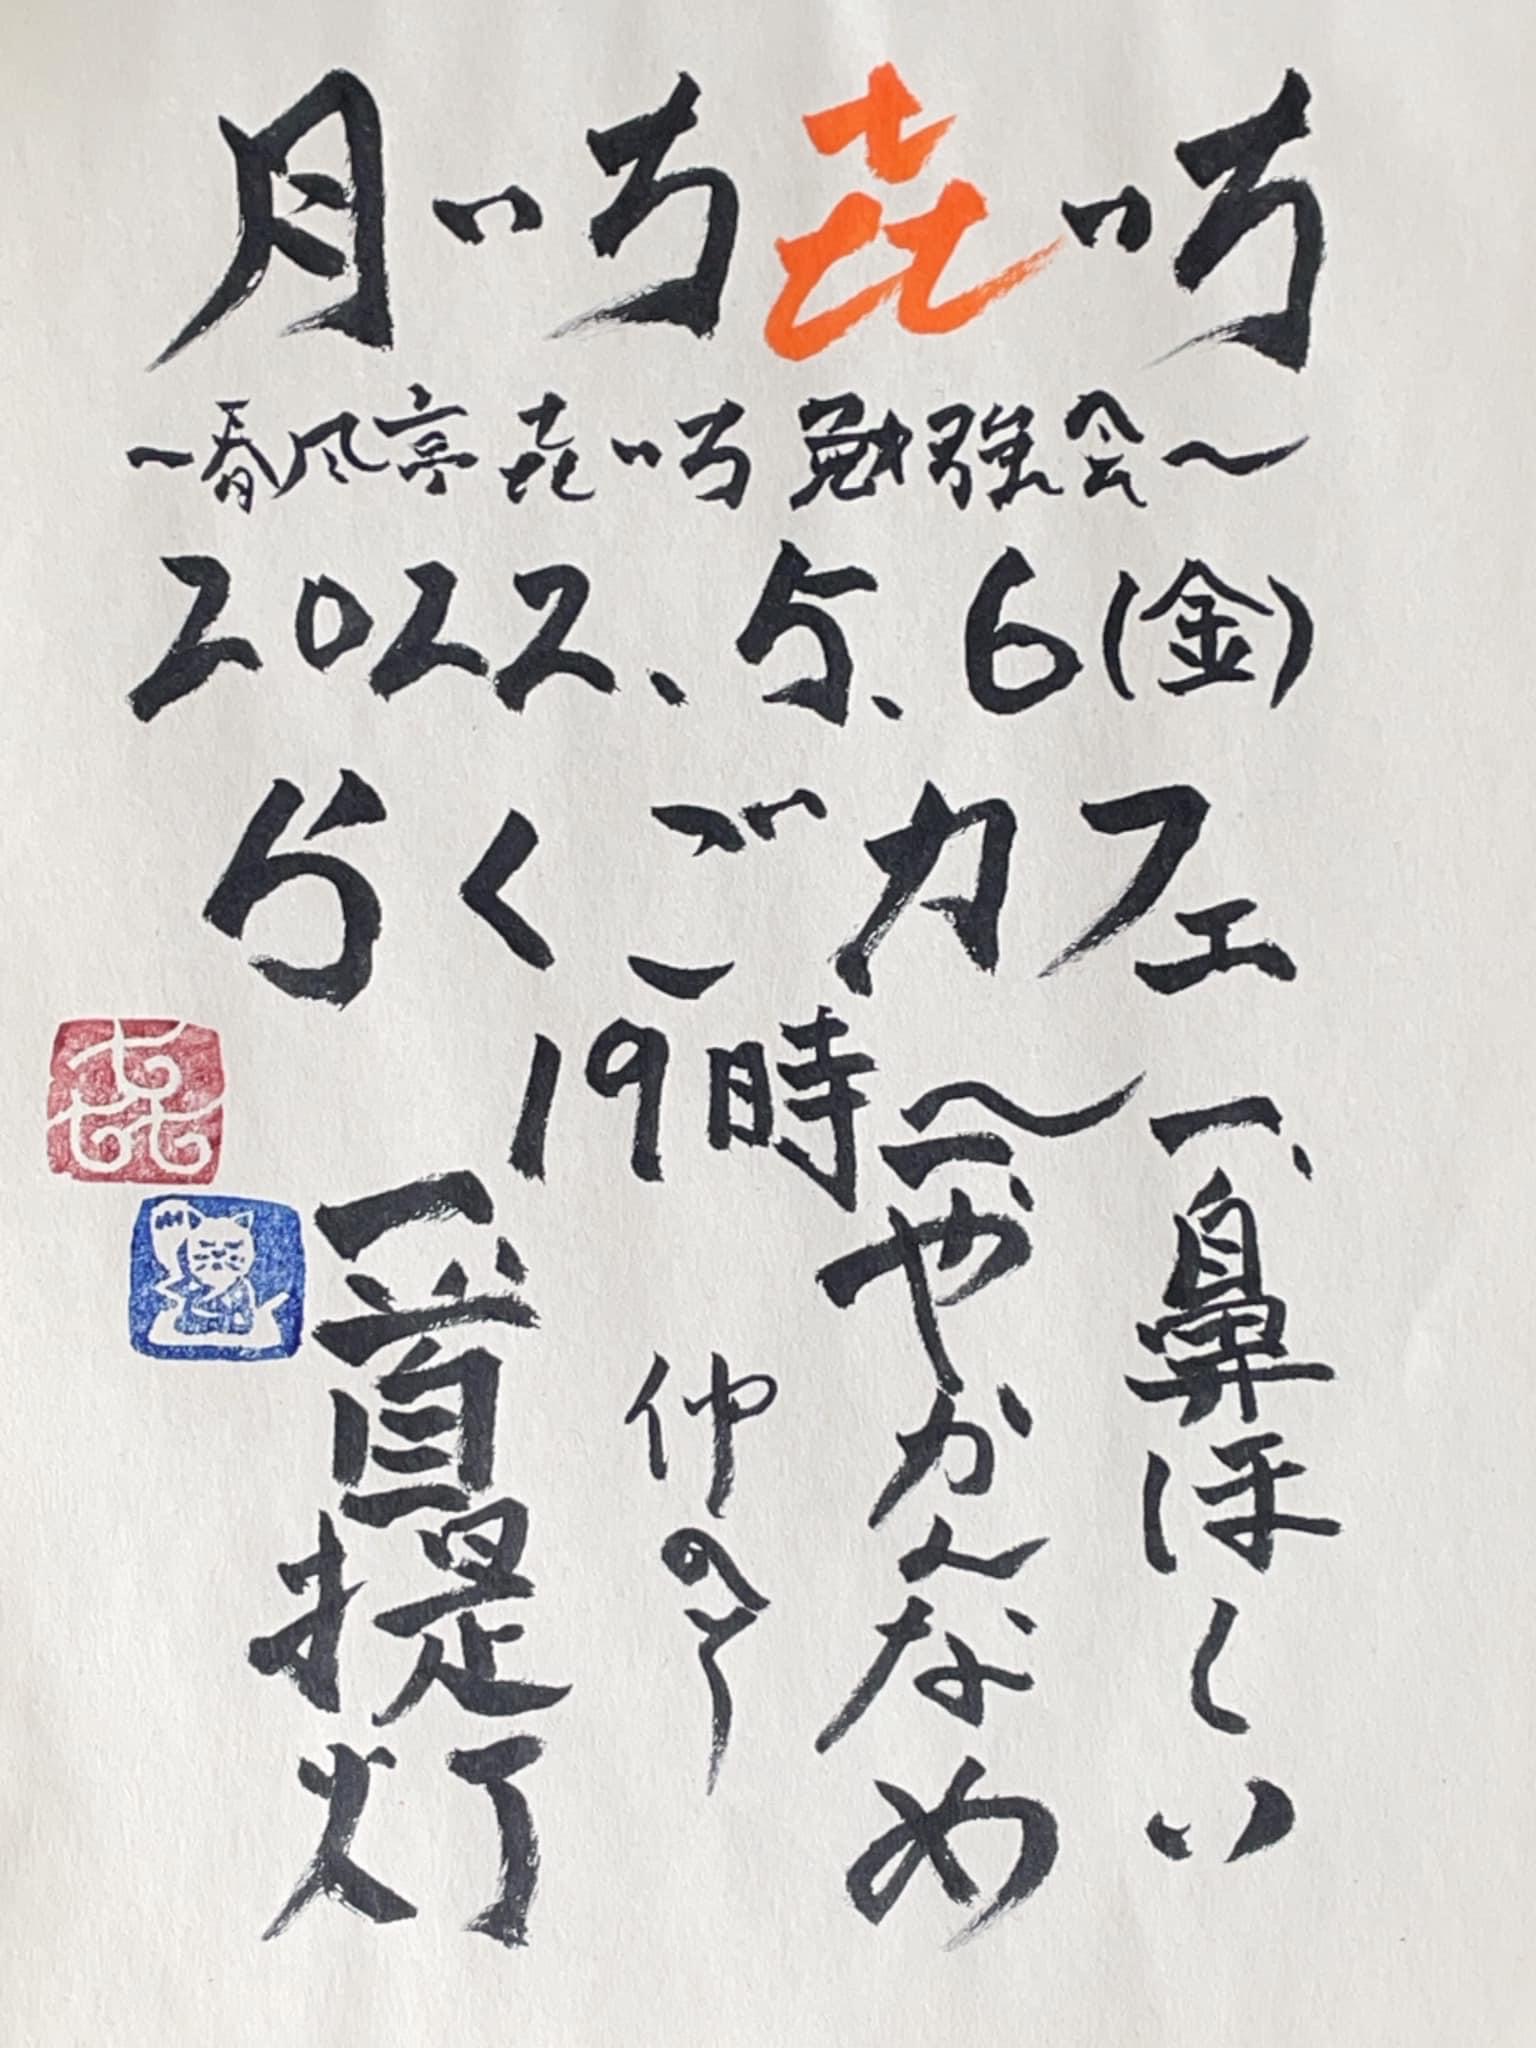 月いち㐂いち
~春風亭㐂いち勉強会~
2022.5.6(金)
らくごカフェ
19時~
一、鼻ほしい
一、やかんなめ
仲入り
一、首提灯
㐂